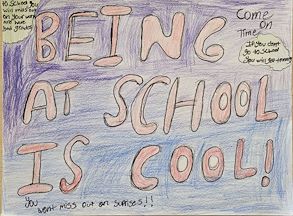 to School you
will miss out
on your work
and have
bad grades
Come
on
Time
If you don't
go to School
you will get
BEING
AT SCHOOL
IS COOL!
you wont miss out on suprises!!